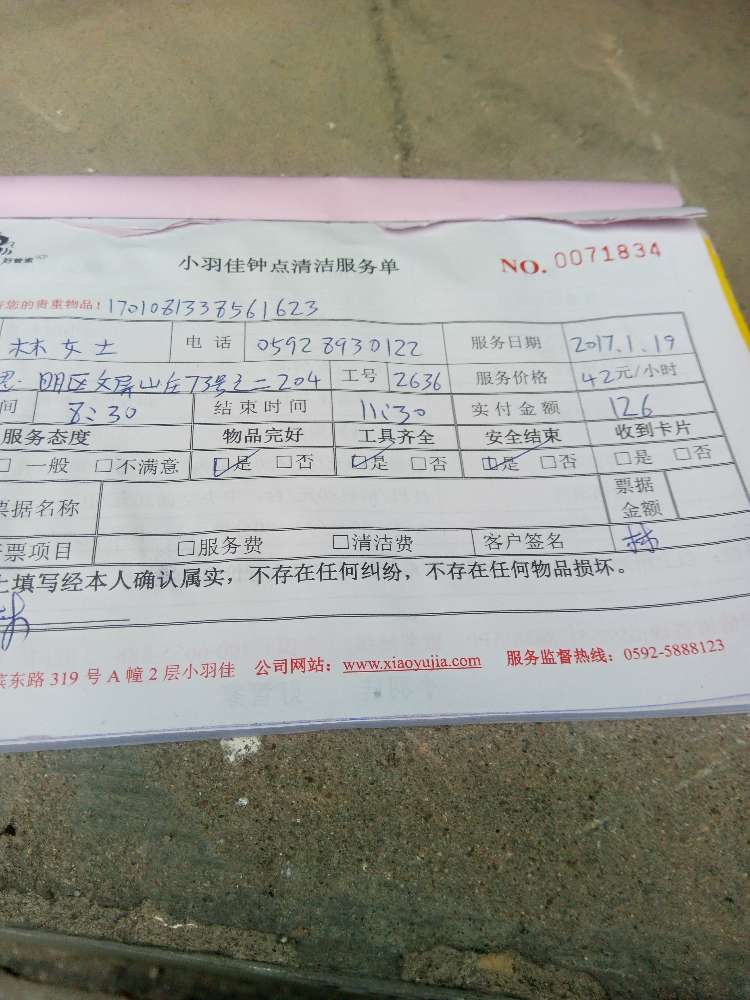 好管家
小羽佳钟点清洁服务单 NO. 0071834
您的贵重物品！ 1701081338561623
林女士 电话 0592 8930122 服务日期 2017.1.19
明区文屏山庄73号之二204 工号 2636 服务价格 42元/小时
间 8:30 结束时间 11:30 实付金额 126
服务态度 物品完好 工具齐全 安全结束 收到卡片
□一般 □不满意 ☑是 □否 ☑是 □否 ☑是 □否 □是 □否
票据名称 票据金额
票项目 □服务费 □清洁费 客户签名 林
上填写经本人确认属实，不存在任何纠纷，不存在任何物品损坏。
滨东路 319 号 A 幢 2 层小羽佳 公司网站：www.xiaoyujia.com 服务监督热线：0592-5888123